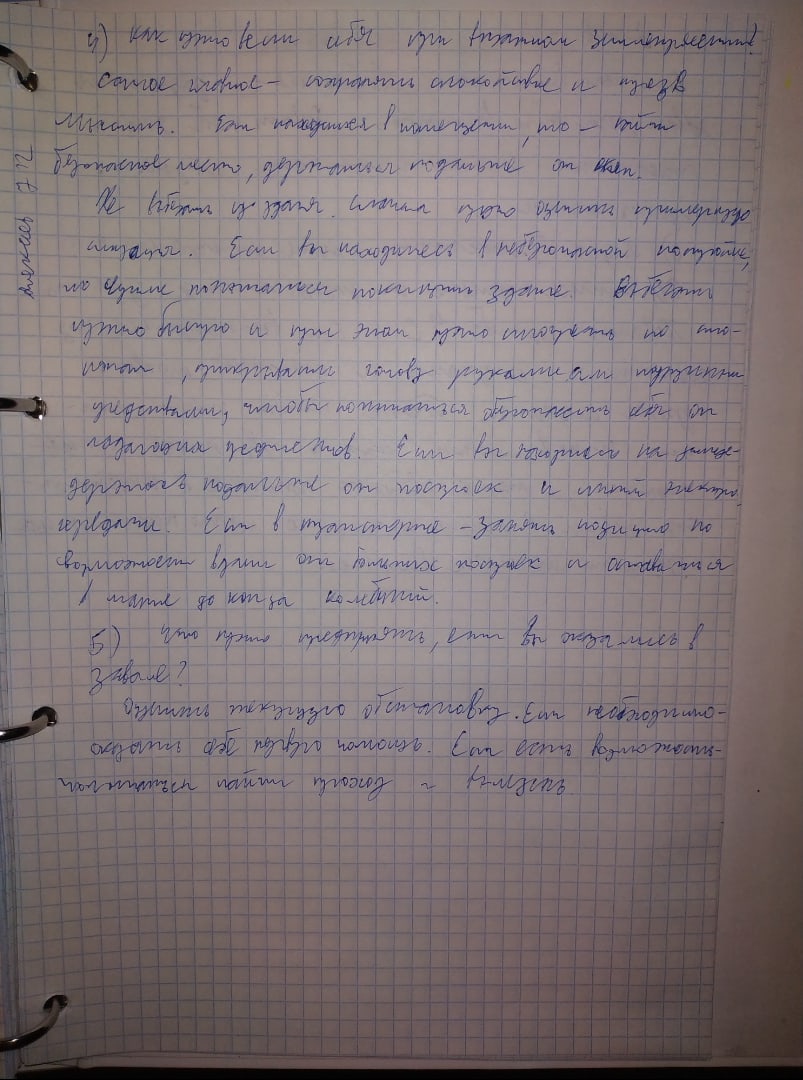 4) Как нужно вести себя при внезапном землетрясении?
Самое главное - сохранять спокойствие и трезв
мыслить. Если находишься в помещении, то - найти
безопасное место, держаться подальше от окон.
Не выбегать из здания, сначала нужно оценить примерную
ситуация. Если вы находитесь в небезопасной постройке,
то лучше попытаться покинуть здание. Выбегать
нужно быстро и при этом нужно смотреть по сто-
ронам, прикрывать голову руками или подручными
средствами, чтобы попытаться обезопасить себя от
падающих предметов. Если вы находитесь на улице-
держитесь подальше от построек и линий электро
передачи. Если в транспорте - занять позицию по
возможности вдали от больших построек и оставаться
в машине до конца колебаний.
5) Что нужно предпринять, если вы оказались в
завале?
Оценить текущую обстановку. Если необходимо-
оказать себе первую помощь. Если есть возможность-
попытаться найти и вылезть